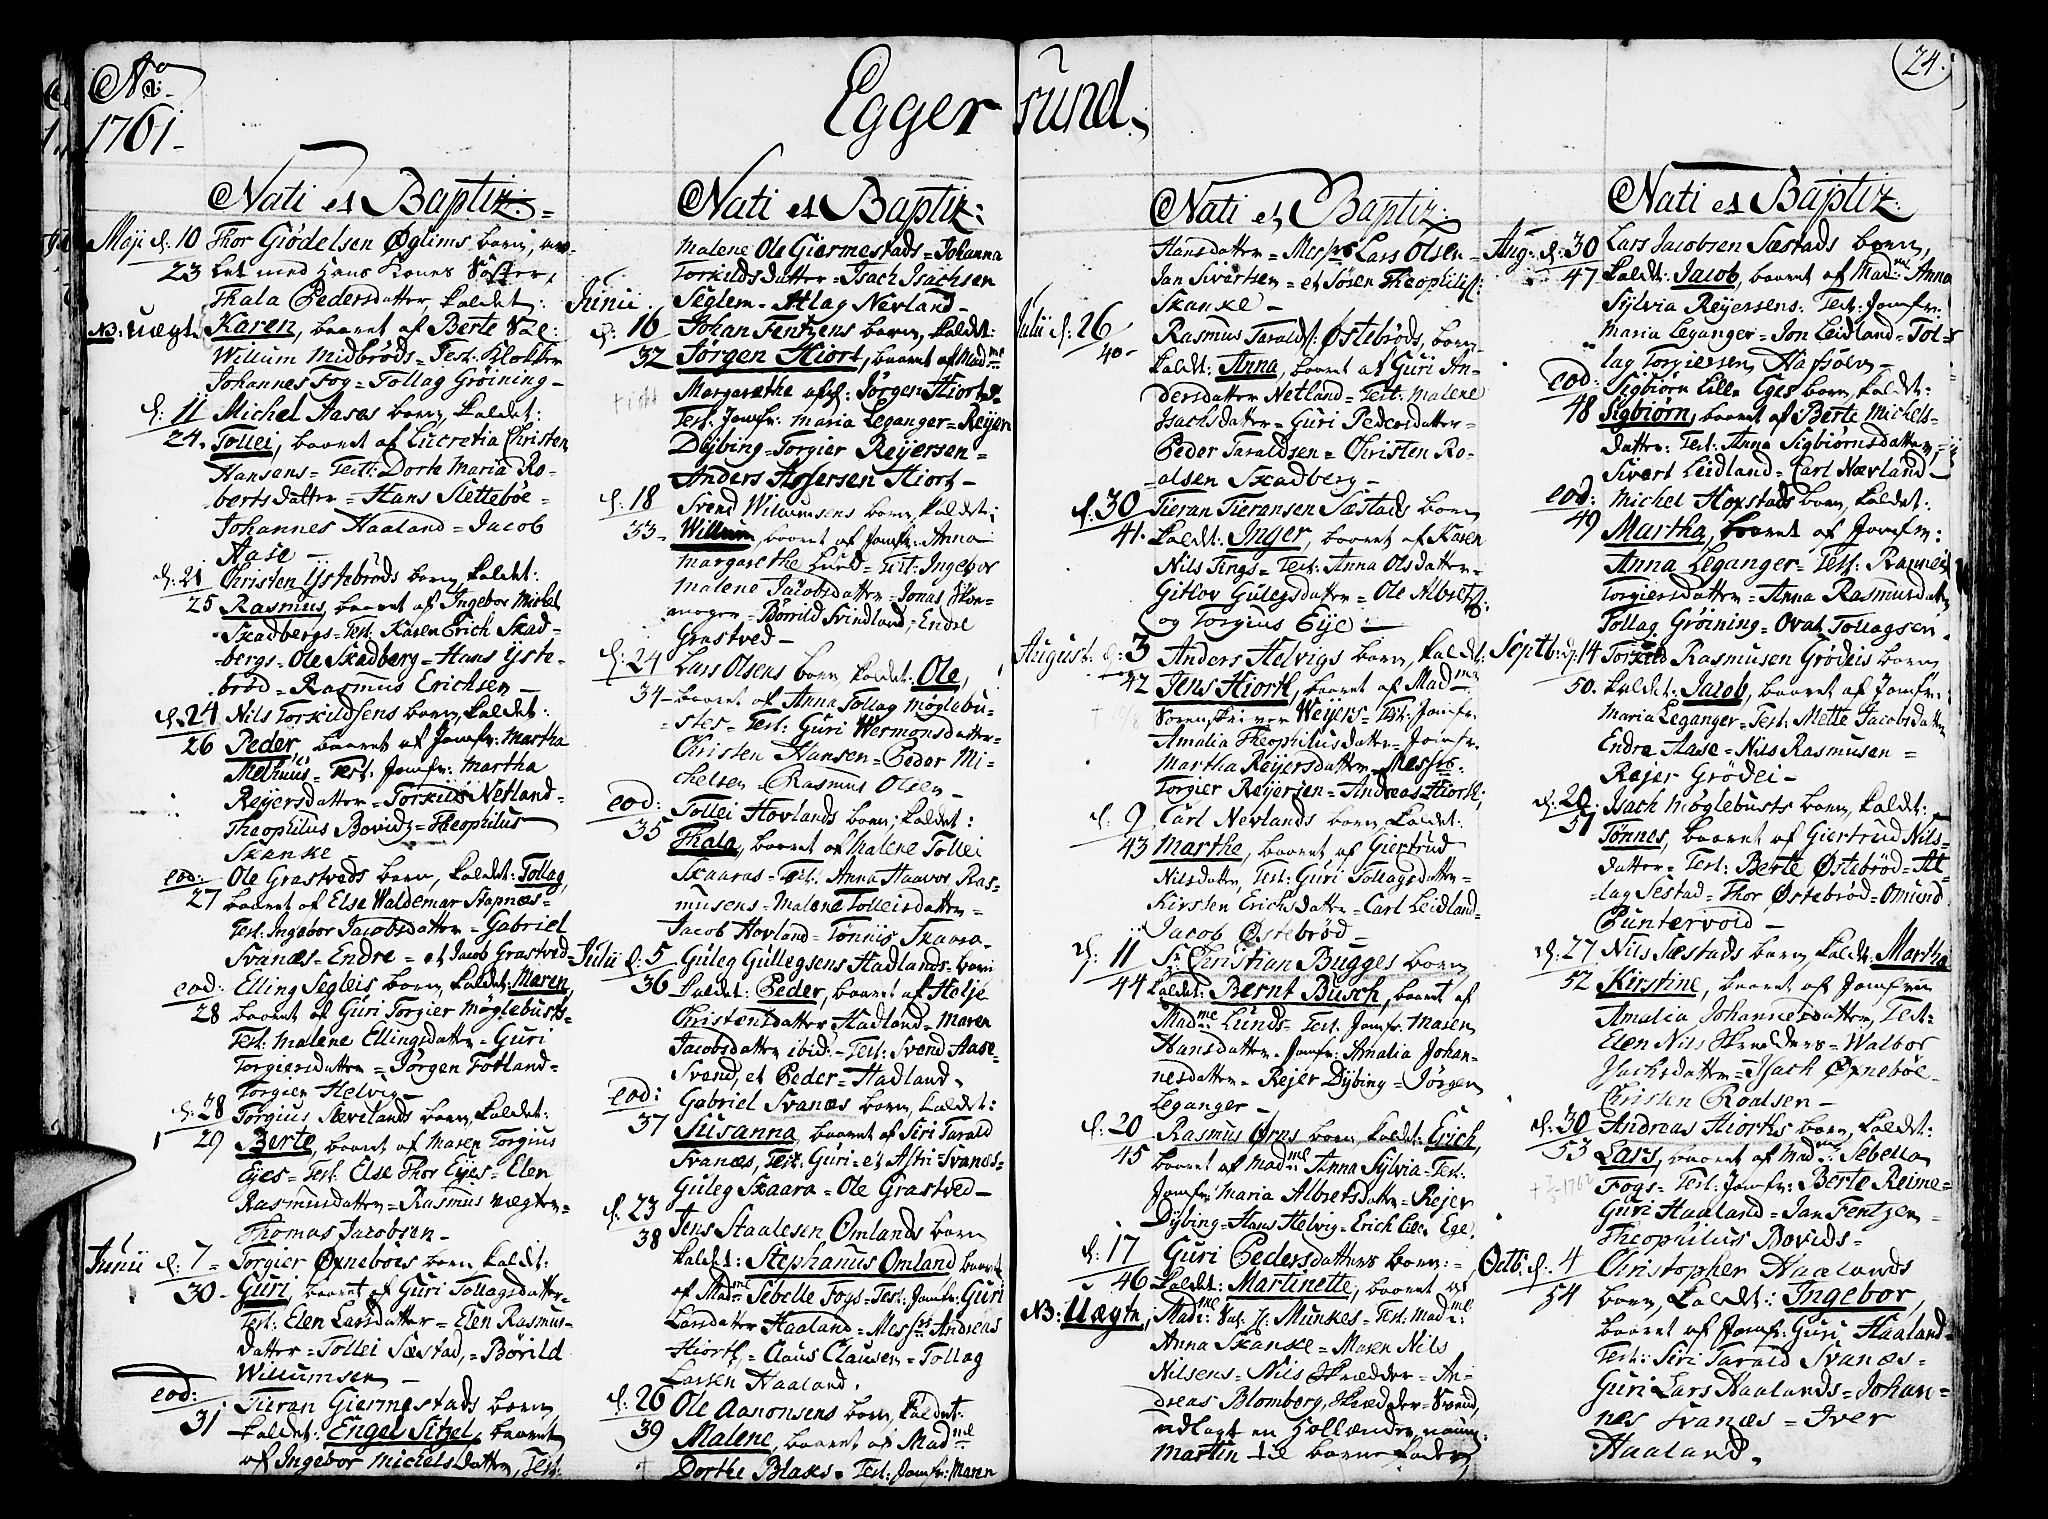 Ao:
1761
Egger sund
24.
Nati et Baptiz:
Maji d. 10 Thor Giödelsen Øglims barn, aw-
23 let med Hans Kones Söster,
Thala Pedersdatter, kaldet:
NB: Uægte Karen, baaret af Berte Sal:
Willum Midbröds = Test: Klokker
Johannes Fog = Tollag Gröining
d. 11 Michel Aases barn, kaldet:
24. Tollei, baaret af Lucretia Christen
Hansens = Test: Dorte Maria Ro-
bertsdatter = Hans Slettebøe =
Johannes Haaland = Jacob
Aase
d. 21 Christen Ystebröds barn, kaldet:
25 Rasmus, baaret af Ingebor Michel
Skadbergs = Test: Karen Erich Skad-
bergs = Ole Skadberg = Hans Yste-
bröd = Rasmus Erichsen
d. 24 Nils Torkildsens barn, kaldet:
26 Peder, baaret af Jomfr: Martha
Test: Jomfr: Martha
Reyersdatter = Torkild Netland =
Theophilus Bovidz = Theophilus
Skanke
eod: Ole Grastveds barn, kaldet: Tollag,
27 baaret af Else Waldemar Stapnæs =
Test: Ingebor Jacobsdatter = Gabriel
Svanæs = Endre = et Jacob Grastved
eod: Elling Segleis barn, kaldet: Maren,
28 baaret af Guri Torgier Möglebusts =
Test: Malene Ellingsdatter = Guri
Torgiersdatter = Jörgen Fotland =
Torgier Helvig
d. 28 Torgius Sævelands barn, kaldet:
29 Berte, baaret af Maren Torgius
Eyes = Test: Else Thor Eyes = Elen
Rasmusdatter = Rasmus vægter =
Thomas Jacobsen
Junii d. 7 Torgier Øvneböes barn, kaldet:
30 Guri, baaret af Guri Tollagsdatter =
Test: Elen Larsdatter = Elen Rasmus-
datter = Tollei Sæstad, = Börild
Willumsen
eod: Tieran Giermestads barn,
31 kaldet: Engel Sitzel, baaret
af Ingebor Michelsdatter, Test:
Nati et Baptiz:
Malene Ole Giermestads = Johanna
Torkildsdatter = Isach Isachsen
Seglem = Atlag Nevland
Junii
d. 16 Johan Fentzens barn, kaldet:
32 Jörgen Hiort, baaret af Madme
Margarethe Jörgen Hiorts =
Test: Jomfr: Maria Leganger = Reyer
Dybing = Torgier Reyersen =
Anders Hiort
d. 18 Svend Willumsens barn, kaldet:
33 Willum, baaret af Jomfr: Anna
Margarethe Lund = Test: Ingebor
Malene Jacobsdatter = Jonas
Börrild Svindland, = Endre
Grastved
d. 24 Lars Olsens barn, kaldet: Ole,
34 baaret af Anna Tollag Möglebu-
stes = Test: Guri Wermonsdatter =
Christen Hansen = Peder Mi-
chelsen = Rasmus Olsen
eod: Tollei Hovlands barn, kaldet:
35 Thala, baaret af Malene Tollei
Skaaras = Test: Anna Haavor Ras-
musens = Malene Tolleisdatter =
Jacob Hovland = Tönnis Skaara
Julii d. 5 Guleg Gullegsens Hadlands barn
36 kaldet: Peder, baaret af Helje
Christensdatter Hadland = Maren
Jacobsdatter ibid: = Test: Svend Aase =
Svend, et Peder = Hadland
eod: Gabriel Svanæs barn, kaldet:
37 Susanna, baaret af Siri Tarald
Svanæs, Test: Guri = et Astri = Svanæs =
Guleg Skaara = Ole Grastved
d. 23 Jens Staalesen Omlands barn
38 kaldet: Stephanus Omland baaret
af Madme Sebelle Fogs = Test: Jomfr: Guri
Larsdatter Haaland = Messrs Andreas
Hiort = Claus Clausen = Tollag
Larsen Haaland.
d. 26 Ole Aanonsens barn, kaldet:
39 Malene, baaret af Madme
Dorthe Blaks = Test: Jomfr: Maren
Nati et Baptiz:
Hansdatter = Messrs Lars Olsen =
Jan Sivertsen = et Sören Theophilis:
Skanke
Julii d. 26 Rasmus Taralds: Östebröds, barn
40 kaldt: Anna, baaret af Guri An-
dersdatter Netland = Test: Malene
Isachsdatter = Guri Pedersdatter =
Peder Taraldsen = Christen Ro-
alsen Skadberg
d. 30 Tieran Tieransen Sæstads barn
41. kaldt: Inger, baaret af Karen
Nils Tengs = Test: Anna Olsdatter =
Gitlov Gulegsdatter = Ole Albrets:
og Torgius Eije
August. d. 3 Anders Helvigs barn, kaldt:
42 Jens Hiort, baaret af Madme
Weyers = Test: Jomfr.
Amalia Theophilusdatter = Jomfr.
Martha Reyersdatter = Messrs:
Torgier Reyersen = Andreas Hiort,
d. 9 Carl Nevlands barn, kaldet:
43 Marthe, baaret af Giertrud
Nilsdatter, Test: Guri Tollagsdatter =
Kirsten Erichsdatter = Carl Leidland =
Jacob Östebröd
d. 11 Sr Christian Bugges barn,
44 kaldet: Bernt Busch, baaret af
Madme Lunds = Test: Jomfr: Maren
Hansdatter = Jomfr: Amalia Johan-
nesdatter = Rejer Dybing = Jörgen
Leganger
d. 20 Rasmus Örns barn, kaldt: Erich,
45 baaret af Madme Anna Sylvia = Test:
Jomfr: Maria Albretsdatter = Rejer
Dybing = Hans Helvig = Erich Ege.
d. 17 Guri Pedersdatters barn:
46 kaldet: Martinette, baaret af
NB: Uægte, Madme Munkes = Test: Madme:
Anna Skanke = Maren Nils
Nilsens = Nils Skrædder = An-
dreas Blomberg, Skrædder = Svend,
udlagt en Hollænder, navn:
Martin til barne fader,
Nati et Baptiz:
Aug: d. 30 Lars Jacobsen Sæstads barn,
47 kaldt: Jacob, baaret af Madme Anna
Sylvia Reyersens: Test: Jomfr:
Maria Leganger = Jon Leidland = Tol-
lag Torgiersen
eod: Sigbiörn Eges barn, kaldet:
48 Sigbiörn, baaret af Berte Michels-
datter: Test: Anna Sigbiörnsdatter =
Sivert Leidland = Carl Nævland
eod: Michel Hovstads barn, kaldet:
49 Martha, baaret af Jomfr:
Anna Leganger = Test: Rannei
Torgiersdatter = Anna Rasmusdatter
Tollag Gröining = Ovat Tollagsen
Septb: d. 14 Torkild Rasmusen Grödeis barn
50. kaldet: Jacob, baaret af Jomfr:
Maria Leganger = Test: Mette Jacobsdatter
Endre Aase = Nils Rasmusen =
Rejer Grödei
d. 20 Isach Möglebusts barn, kaldt:
51 Tönnes, baaret af Giertrud Nils-
datter = Test: Berte Östebröd = At-
lag Sestad = Thor Östebröd = Omund
Puntervold
d. 27 Nils Sæstads barn, kaldt: Martha
52 Kirstine, baaret af Jomfru
Amalia Johannesdatter, Test:
Elen Nils Skredders = Walbor
Isachsdatter = Isach Øvnebøe
Christen Roalsen
d. 30 Andreas Hiorths barn, kaldet:
53 Lars, baaret af Madme Sebella
Fogs = Test: Jomfr: Berte Reime =
Guri Haaland = Jan Fentzen =
Theophilus Bovids =
Octb: d. 4 Christopher Haalands
54 barn, kaldet: Ingebor,
baaret af Jomfr: Guri Haaland =
Test: Siri Tarald Svanæs =
Guri Lars Haalands = Johan-
nes Svanæs = Iver
Haaland.